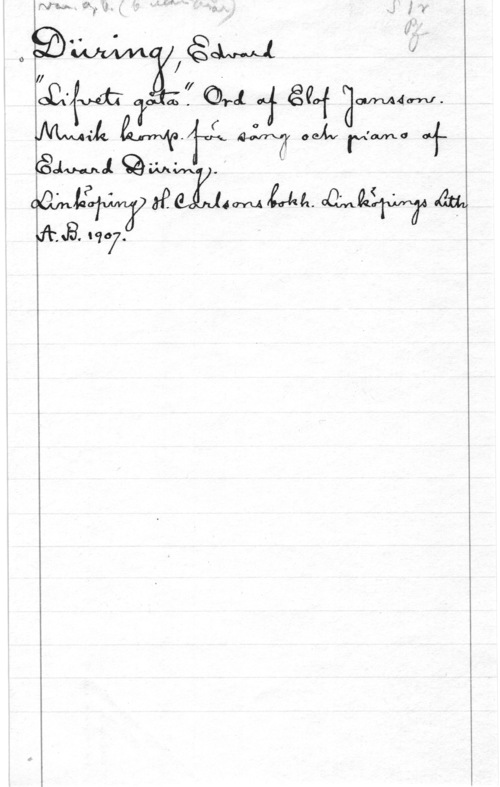 S 1r
Pf
Düring, Edvard
"Lifvets gåta". Ord af Elof Jansson.
Musik komp. för sång och piano af
Edvard Düring.
Linköping, H. Carlsons bokh. Linköpings Lith
A.B. 1907.